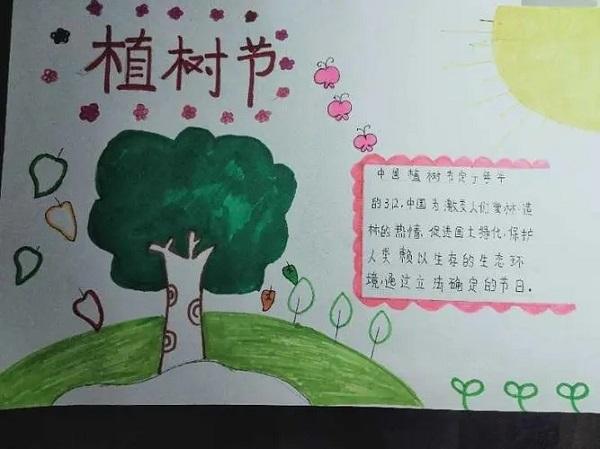 植树节
中国植树节定于每年
的3.12,中国为激发人们爱林、造
林的热情,促进国土绿化,保护
人类赖以生存的生态环
境,通过立法确定的节日。